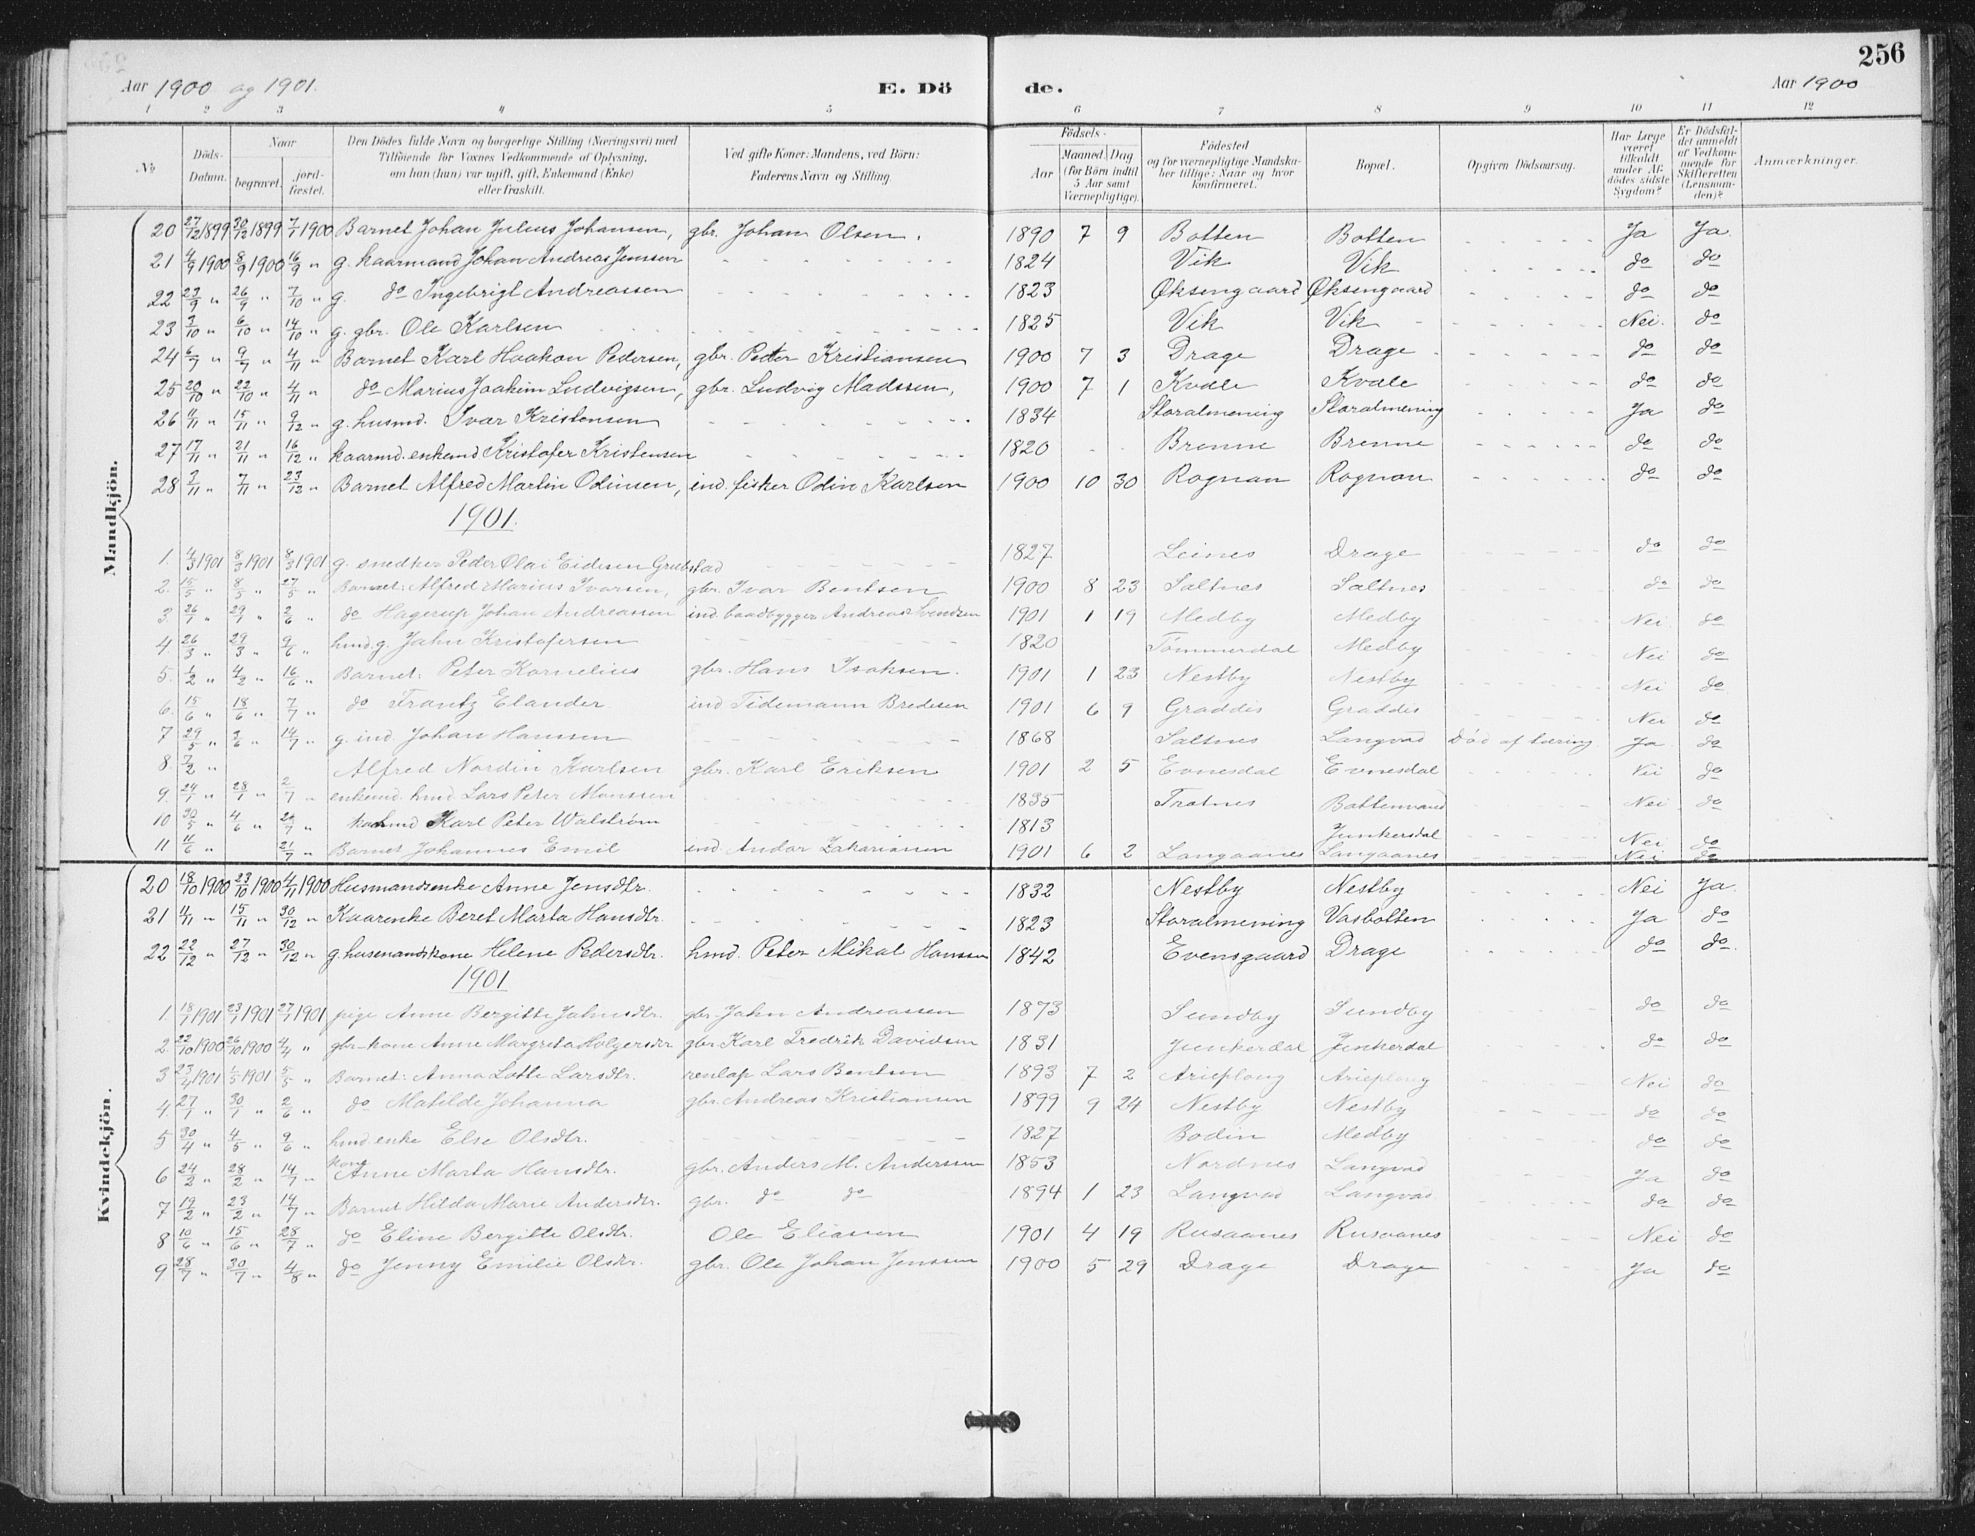 256
Aar 1900 og 1901. E. Dö de. Aar 1900
1 2 3 4 5 6 7 8 9 10 11 12
No Döds-Datum. Naar begravet. jord-fæstet. Den Dödes fulde Navn og borgerlige Stilling (Næringsvei) med Tilföiende for Voxnes Vedkommende af Oplysning, om han (hun) var ugift, gift, Enkemand (Enke) eller fraskilt. Ved gifte Koner: Mandens, ved Börn: Faderens Navn og Stilling. Födsels- Aar Maaned. Dag (for Börn indtil 5 Aar samt Værnepligtige). Födested og for værnepligtige Mandska-ber tillige: Naar og hvor konfirmeret. Bopæl. Opgiven Dödsaarsag. Har Læge været tilkaldt under Af-dödes sidste Sygdom? Er Dödsfal-det anmeldt af Vedkom-mende for Skifteretten (Lensman-den)? Anmærkninger.
Mandkjön.
20 27/12 1899 30/12 1899 7/1 1900 Barnet Johan Julius Johansen, gbr. Johan Olsen. 1890 7 9 Botten Botten Ja Ja
21 4/9 1900 8/9 1900 16/9 " g. kaarmand Johan Andreas Jenssen 1824 Vik Vik do do
22 23/9 " 26/9 " 7/10 " g. do Ingebrigt Andreassen 1823 Øksengaard Øksengaard do do
23 3/10 " 6/10 " 14/10 " g. gbr. Ole Karlsen 1825 Vik Vik Nei. do
24 6/7 " 9/7 " 4/11 " Barnet Karl Haakon Pedersen, gbr. Peter Kristiansen 1900 7 3 Drage Drage do do
25 20/10 " 22/10 " 4/11 " do Marius Joakim Ludvigsen, gbr. Ludvig Madssen, 1900 7 1 Kvæle Kvæle do do
26 11/11 " 15/11 " 9/12 " g. husmd. Ivar Kristensen 1834 Storalmening Storalmening Ja do
27 17/11 " 21/11 " 16/12 " kaarmd. enkemd Kristofer Kristensen 1820 Brenne Brenne do do
28 2/11 " 7/11 " 23/12 " Barnet Alfred Martin Odinsen, ind. fisker Odin Karlsen 1900 10 30 Rognan Rognan do do
1901.
1. 4/3 1901 8/3 1901 8/3 1901 g. snedker Peder Olai Eidisen Grubstad 1827 Leines Drage do do
2. 15/5 " 8/5 " 27/5 " Barnet: Alfred Marius Ivarsen, gbr. Ivar Bentsen 1900 8 23 Saltnes Saltnes do do
3. 26/1 " 29/1 " 2/6 " do Hagerup Johan Andreassen ind. baadbygger Andreas Svendsen 1901 1 19 Medby Medby Nei do
4 26/3 " 29/3 " 9/6 " hmd. g. Jahn Kristofersen 1820 Tømmerdal Medby Nei do
5. 1/2 " 4/2 " 16/6 " Barnet: Peter Kornelius gbr. Hans Isaksen. 1901 1 23 Nestby Nestby Nei do
6. 15/6 " 18/6 " 7/7 " do Frantz Elander ind Tidemann Bredesen 1901 6 9 Graddis Graddis Nei do
7 29/5 " 3/6 " 14/7 " g. ind. Johan Hanssen 1868 Saltnes Langvad Død af tæring. Ja do
8. 7/2 " Alfred Nordin Karlsen gbr. Karl Eriksen 1901 2 5 Evnesdal Evnesdal Nei do
9. 24/1 " 28/1 " 2/7 " enkemd. hmd Lars Peter Monssen 1835 Bottenvand Nei do
10 30/5 " 4/6 " 21/7 " Karl Peter Walstrøm 1813 Junkersdal Nei do
11 11/6 " 21/7 " Barnet Johannes Emil ind Andor Zakariasen 1901 6 2 Langaanes Langaanes Nei do
Kvindekjön.
20 18/10 1900 23/10 1900 4/11 1900 Husmandsenke Anne Jensdtr. 1832 Nestby Nestby Nei Ja
21 11/11 " 15/11 " 30/12 " Kaarenke Beret Marta Hansdtr. 1823 Storalmening Vasbotten Ja do
22 22/12 " 27/12 " 30/12 " g. husmandskone Helene Pedersdtr. hmd. Peter Mikal Hanssen 1842 Evensgaard Drage do do
1901
1 18/1 1901 23/1 1901 27/1 1901 pige Anne Bergitte Jahnsdtr. gbr. Jahn Andreassen 1873 Sundby Sundby do do
2 22/10 1900 26/10 1900 4/4 " gbr-kone Anne Margreta Holgersdtr gbr Karl Fredrik Davidsen 1831 Junkerdal Junkerdal do do
3 23/4 1901 1/5 1901 5/5 " Barnet: Anna Lotte Larsdtr. renlap Lars Bentsen 1893 7 2 Arieplong Arieplong Nei do
4. 27/1 " 30/1 " 2/6 " do Matilde Johanna gbr. Andreas Kristiansen 1899 9 24 Nestby Nestby do do
5 30/4 " 4/5 " 9/6 " hmd. enke Else Olsdtr. 1827 Bodin Medby do do
6 24/2 " 28/2 " 14/7 " kone Anne Marta Hansdtr. gbr. Anders M. Andersen 1853 Nordnes Langvad Ja do
7 19/2 " 23/2 " 14/7 " Barnet Hilda Marie Andersdtr. gbr. do do 1894 1 23 Langvad Langvad do do
8 10/6 " 15/6 " 28/7 " do Eline Bergitte Olsdtr. Ole Eliassen 1901 4 19 Rusaanes Rusaanes Nei do
9 28/7 " 30/7 " 4/8 " do Jenny Emilie Olsdtr. gbr. Ole Johan Jenssen 1900 5 29 Drage Drage Ja do